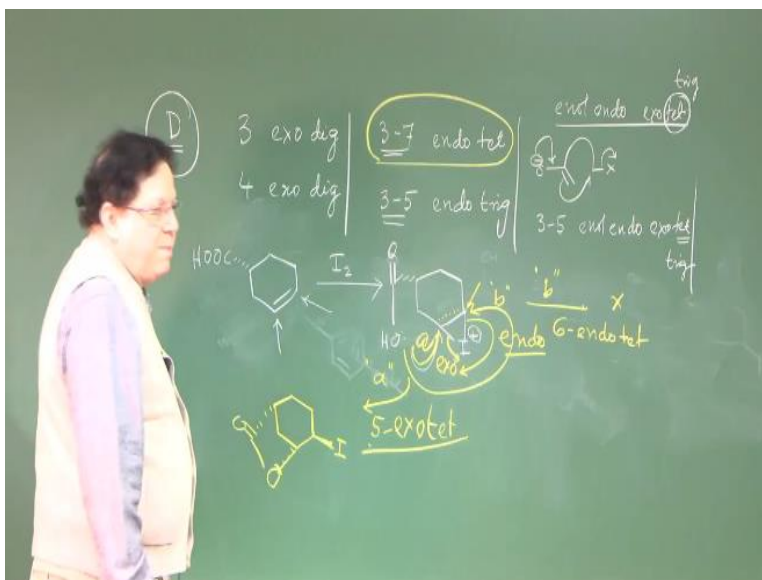 D
3 exo dig
4 exo dig
3-7 endo tet
3-5 endo trig
trig
enol endo exo tet
X
3-5 enol endo exo tet
trig
HOOC
I2
O
HO
I
"a"
a
exo
"b"
endo
"b" X
6-endo tet
5-exotet
O
I